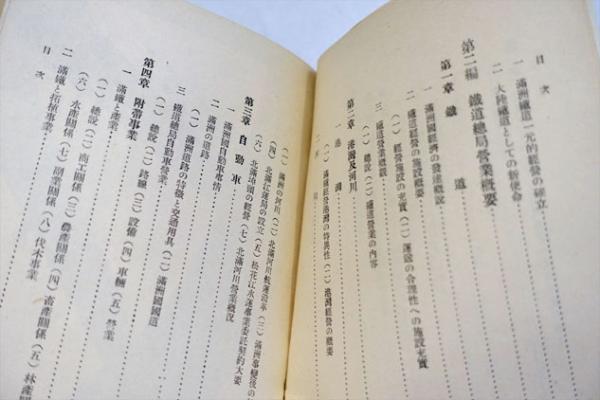 目次
一 滿洲鐵道一元的經營の確立
二 大陸鐵道としての新使命
第二編 鐵道總局營業概要
第一章 鐵道
一 滿洲國經濟の發達概說
二 鐵道經營施設の概要
(一) 經營施設の充實 (二) 運送の合理性への施設充實
三 鐵道營業概觀
(一) 總說 (二) 鐵道營業の內容
第二章 港灣及河川
一 港灣
(一) 滿鐵經營港灣の特異性 (二) 港灣經營の概要
二 河川
(一) 滿洲の河川 (二) 北滿河川航運沿革 (三) 滿洲事變後の
(四) 北滿江運局の設立 (五) 松花江水運事業委託契約大要
(六) 北滿埠頭の經營 (七) 北滿河川營業概況
第三章 自動車
一 滿洲國自動車事情
二 滿洲の道路
(一) 滿洲道路の特徵と交通用具 (二) 滿洲國國道
三 鐵道總局自動車營業
(一) 總說 (二) 路線 (三) 設備 (四) 車輛 (五) 營業
第四章 附帶事業
一 滿鐵と產業
(一) 總說 (二) 商工關係 (三) 農產關係 (四) 畜產關係 (五) 林產關
(六) 水產關係 (七) 副業關係 (八) 伐木事業
二 滿鐵と拓植事業
目次